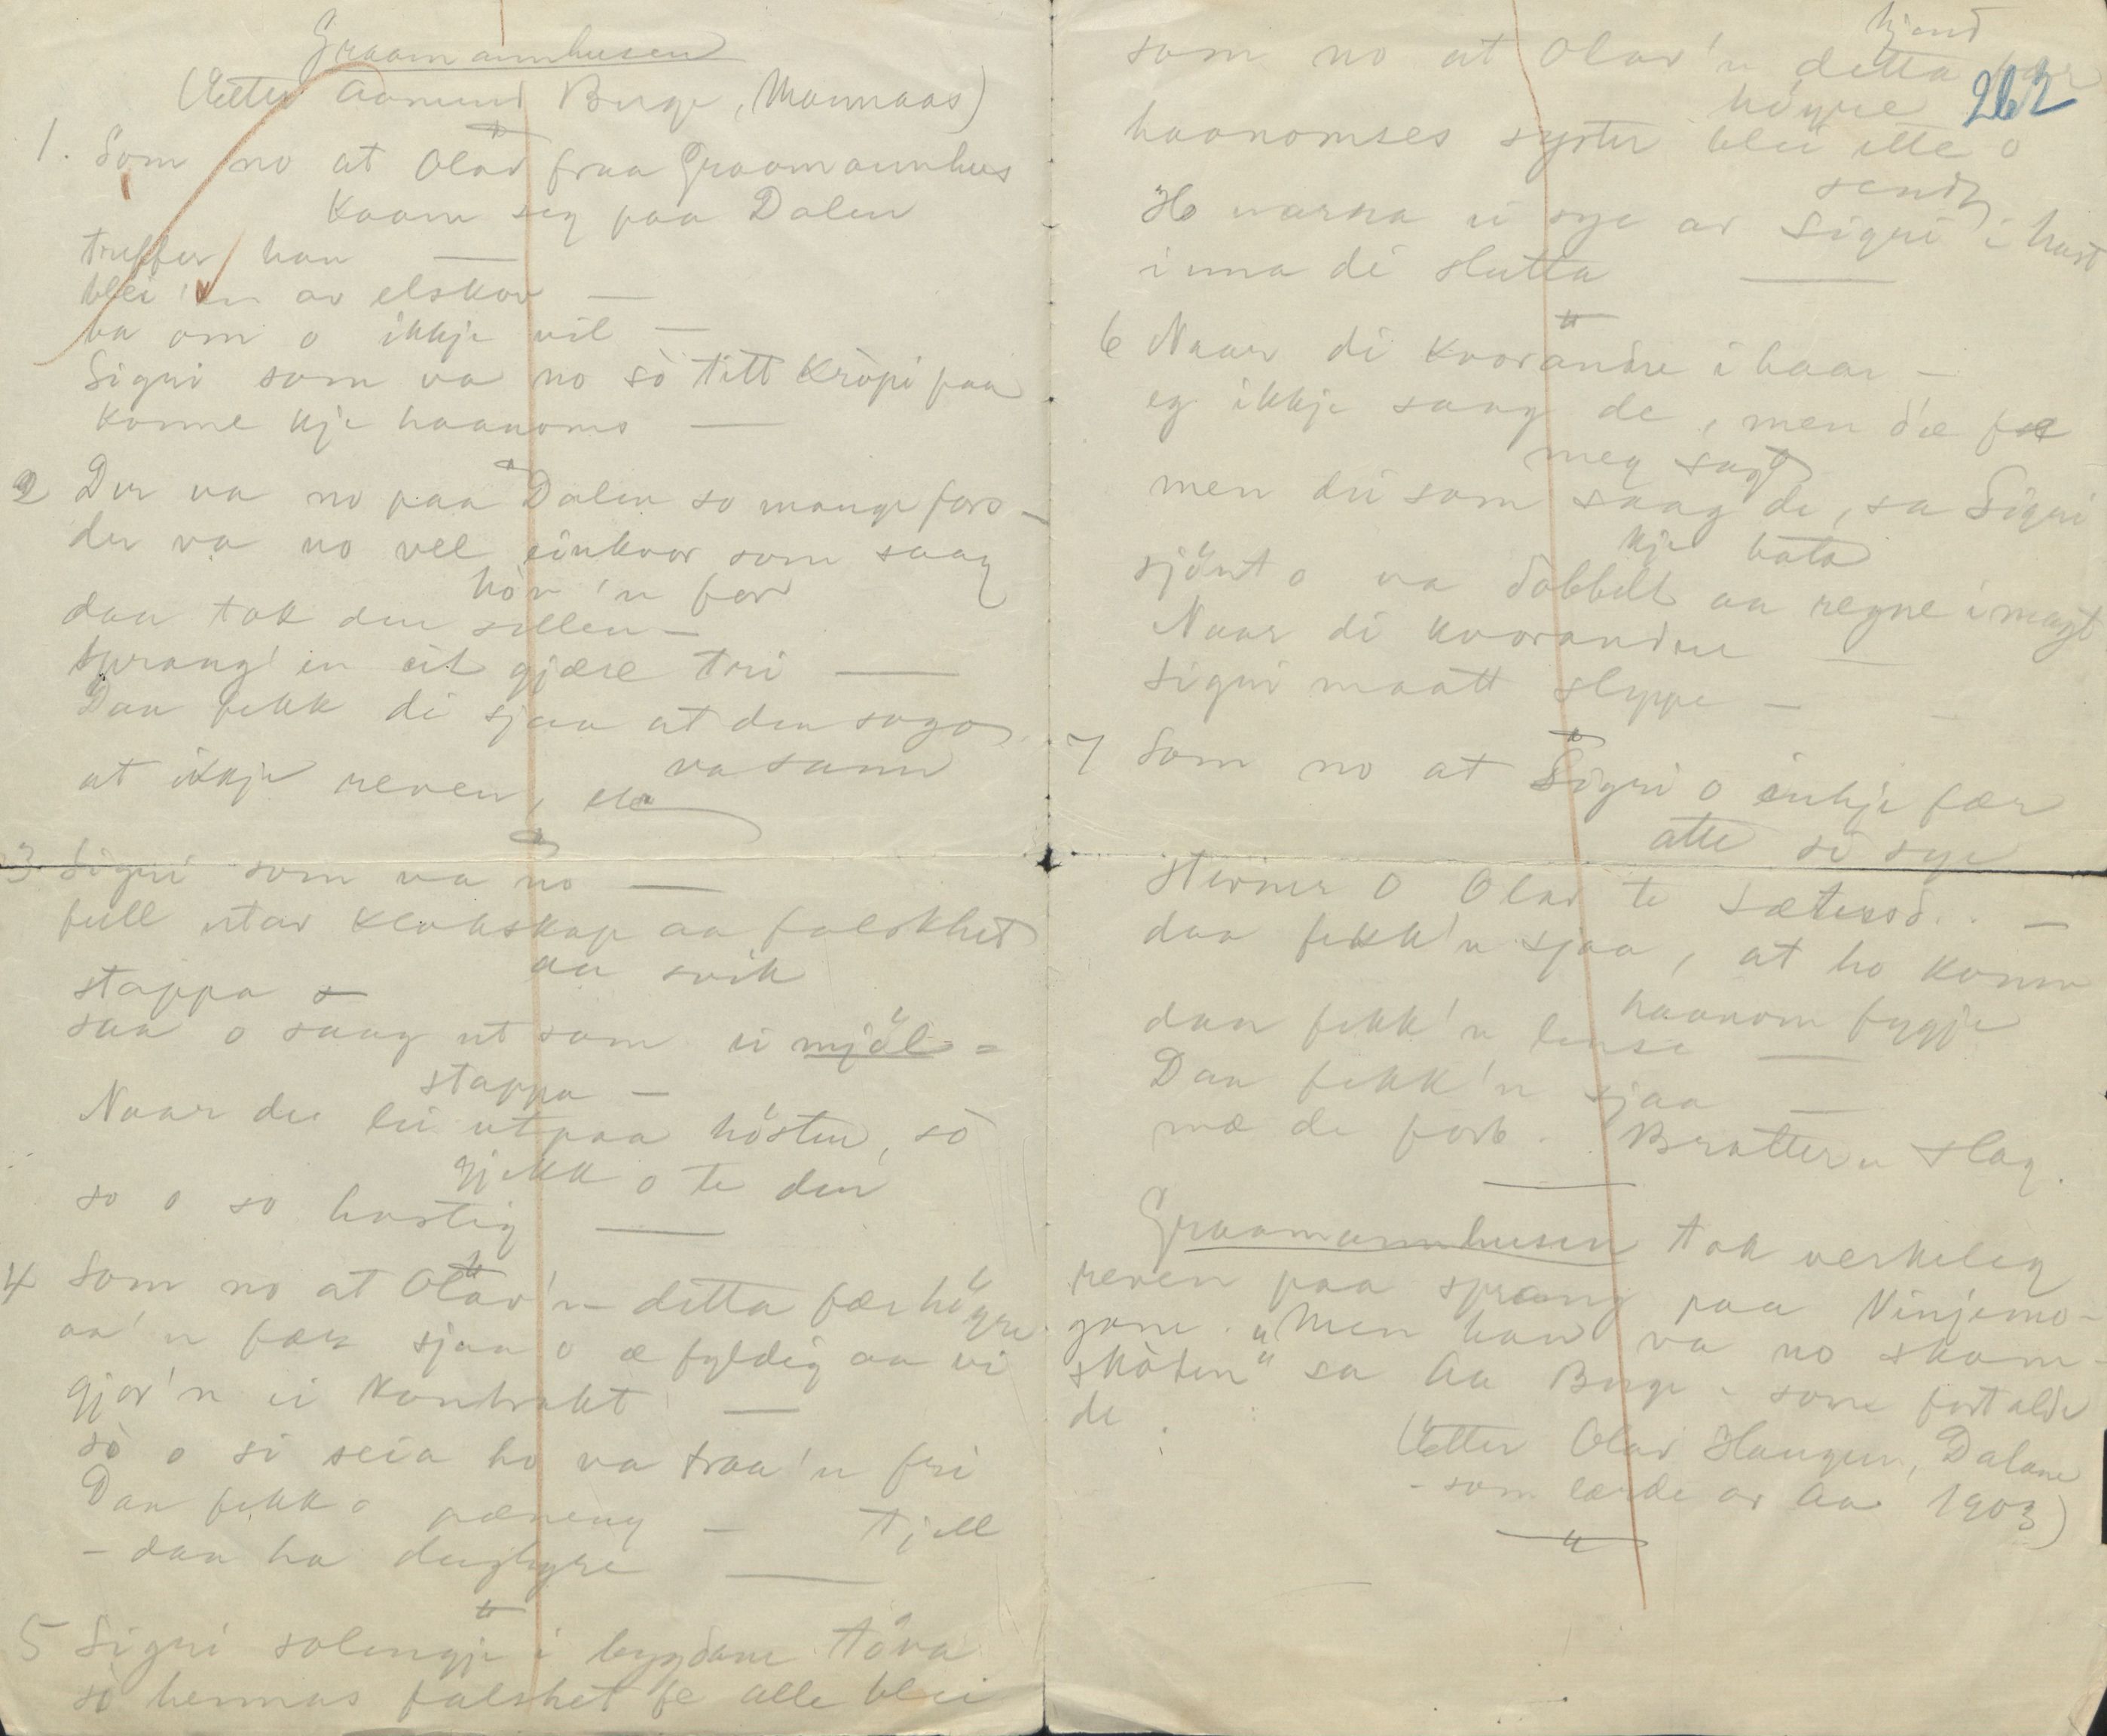 Graamannhusen
(Etter Aamund Berge, Mannaas)
1. Som no at Olav fraa Graamannhus
kaam seg paa Dalen
treffer han —
blei 'n av elskov —
va om o ikkje vil —
Sigri som va no sò titt kròpi paa
konne kje haanoms —
2 Der va no paa Dalen so mange fors-
der va no vel einkvor som saag
hòr 'n for
daa tok den sellen —
sprang' en eit gjære tri —
Daa fekk di sjaa at den soga
va sann
at ikkje reven,
3. Sigri som va no —
full utav klokskap aa falskhet
aa svik
stappa
saa o saag ut som ei mjöl=
stappa —
Naar de lei utpaa hösten, sò
gjekk o te den
so o so hastig —
4 Som no at Olav'n detta fær högre
aa'n fær sjaa o æ fyldig aa vi
gjor'n ei kontrakt —
sò o si seia ho va traa'n fri
Daa fekk o pæneng — tjell
- daa ha dughyre —
5 Sigri solengje i bygdane töva
sò hennas falshet fe alle blei
kjend
som no at Olav'n detta fær
högre
haanomses syster blei ette o
send
Ho narra ei sye av Sigri i hast
inna di slutta —
6 Naar di kvorandre i haar —
eg ikkje saag de, men d'æ fe
meg sagt
men dei som saag de, sa Sigri
kje bata
sjönt o va dobbelt aa regne i magt
Naar di kvorandre —
Sigri maatt sleppe —
7 Som no at Sigri o inkje fær
atte si sye
stevner o Olav te Sætesd.. —
daa fekk'n sjaa, at ho konn
haanom fygje
daa fekk'n lense —
Daa fekk'n sjaa —
mæ de forb. Bratter'n slag.
Graamannhusen tok verkeleg
reven paa sprang paa Vinjemo-
gane. "Men han va no skam-
skòten" sa Aa Berge - som fortalde
de.
(Etter Olav Haugen, Dalane
- som lærde av Aa. 1903)
262